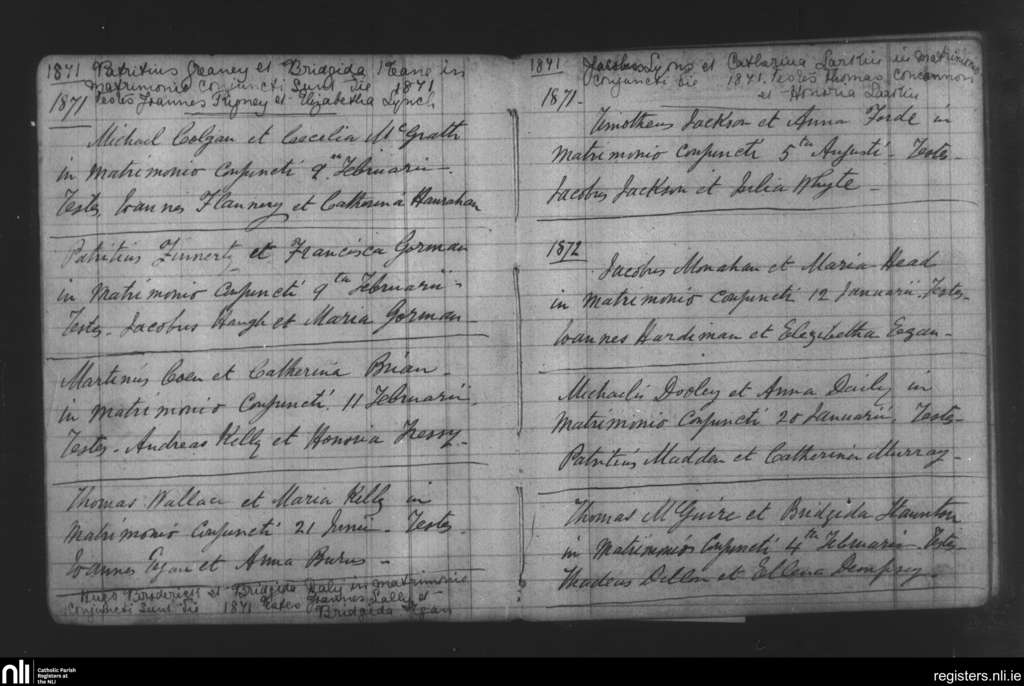 1871 Patritius Greaney et Bridgida Keane in
matrimonio conjuncti sunt die 1871
1871 Testes Joannes Rigney et Elizabetha Lynch
Michael Colgan et Caecilia McGrath
in Matrimonio Conjuncti 9 Februarii.
Testes, Joannes Flannery et Catherina Hanrahan
Patritius Finnerty et Francisca Gorman
in Matrimonio Conjuncti 9 Februarii -
Testes - Jacobus Haugh et Maria Gorman
Martinus Coen et Catherina Brian -
in Matrimonio Conjuncti 11 Februarii,
Testes - Andreas Kelly et Honoria
Thomas Wallace et Maria Kelly in
Matrimonio Conjuncti 21 Junii - Testes
Joannes Egan et Anna Burns -
Hugo Broderick et Bridgida Daly in matrimonio
conjuncti sunt die 1871 Testes Joannes Lally et
Bridgida Egan
1871 Jacobus Lyons et Catharina Larkin in matrimonio
conjuncti die 1871. Testes Thomas Concannon
1871. et Honoria Larkin
Timotheus Jackson et Anna Forde in
Matrimonio Conjuncti 5 Augusti - Testes -
Jacobus Jackson et Julia Whyte -
1872
Jacobus Monahan et Maria Head
in Matrimonio Conjuncti 12 Januarii - Testes -
Joannes Hardiman et Elizibetha Egan -
Michaelis Dooley et Anna Daily in
Matrimonio Conjuncti 20 Januarii, Testes -
Patritius Madden et Catherina Murray -
Thomas McGuire et Bridgida Staunton
in Matrimonio Conjuncti 4th Februarii - Testes -
Thadeus Dillon et Ellena Dempsey.
nli Catholic Parish
Registers at
the NLI
registers.nli.ie